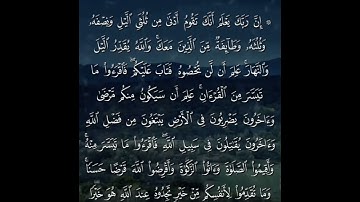 ۞ إِنَّ رَبَّكَ يَعْلَمُ أَنَّكَ تَقُومُ أَدْنَىٰ مِن ثُلُثَيِ ٱلَّيْلِ وَنِصْفَهُۥ
وَثُلُثَهُۥ وَطَآئِفَةٌ مِّنَ ٱلَّذِينَ مَعَكَ ۚ وَٱللَّهُ يُقَدِّرُ ٱلَّيْلَ
وَٱلنَّهَارَ ۚ عَلِمَ أَن لَّن تُحْصُوهُ فَتَابَ عَلَيْكُمْ ۖ فَٱقْرَءُوا۟ مَا
تَيَسَّرَ مِنَ ٱلْقُرْءَانِ ۚ عَلِمَ أَن سَيَكُونُ مِنكُم مَّرْضَىٰ ۙ
وَءَاخَرُونَ يَضْرِبُونَ فِى ٱلْأَرْضِ يَبْتَغُونَ مِن فَضْلِ ٱللَّهِ ۙ
وَءَاخَرُونَ يُقَٰتِلُونَ فِى سَبِيلِ ٱللَّهِ ۖ فَٱقْرَءُوا۟ مَا تَيَسَّرَ مِنْهُ ۚ
وَأَقِيمُوا۟ ٱلصَّلَوٰةَ وَءَاتُوا۟ ٱلزَّكَوٰةَ وَأَقْرِضُوا۟ ٱللَّهَ قَرْضًا حَسَنًا ۚ
وَمَا تُقَدِّمُوا۟ لِأَنفُسِكُم مِّنْ خَيْرٍ تَجِدُوهُ عِندَ ٱللَّهِ هُوَ خَيْرًا